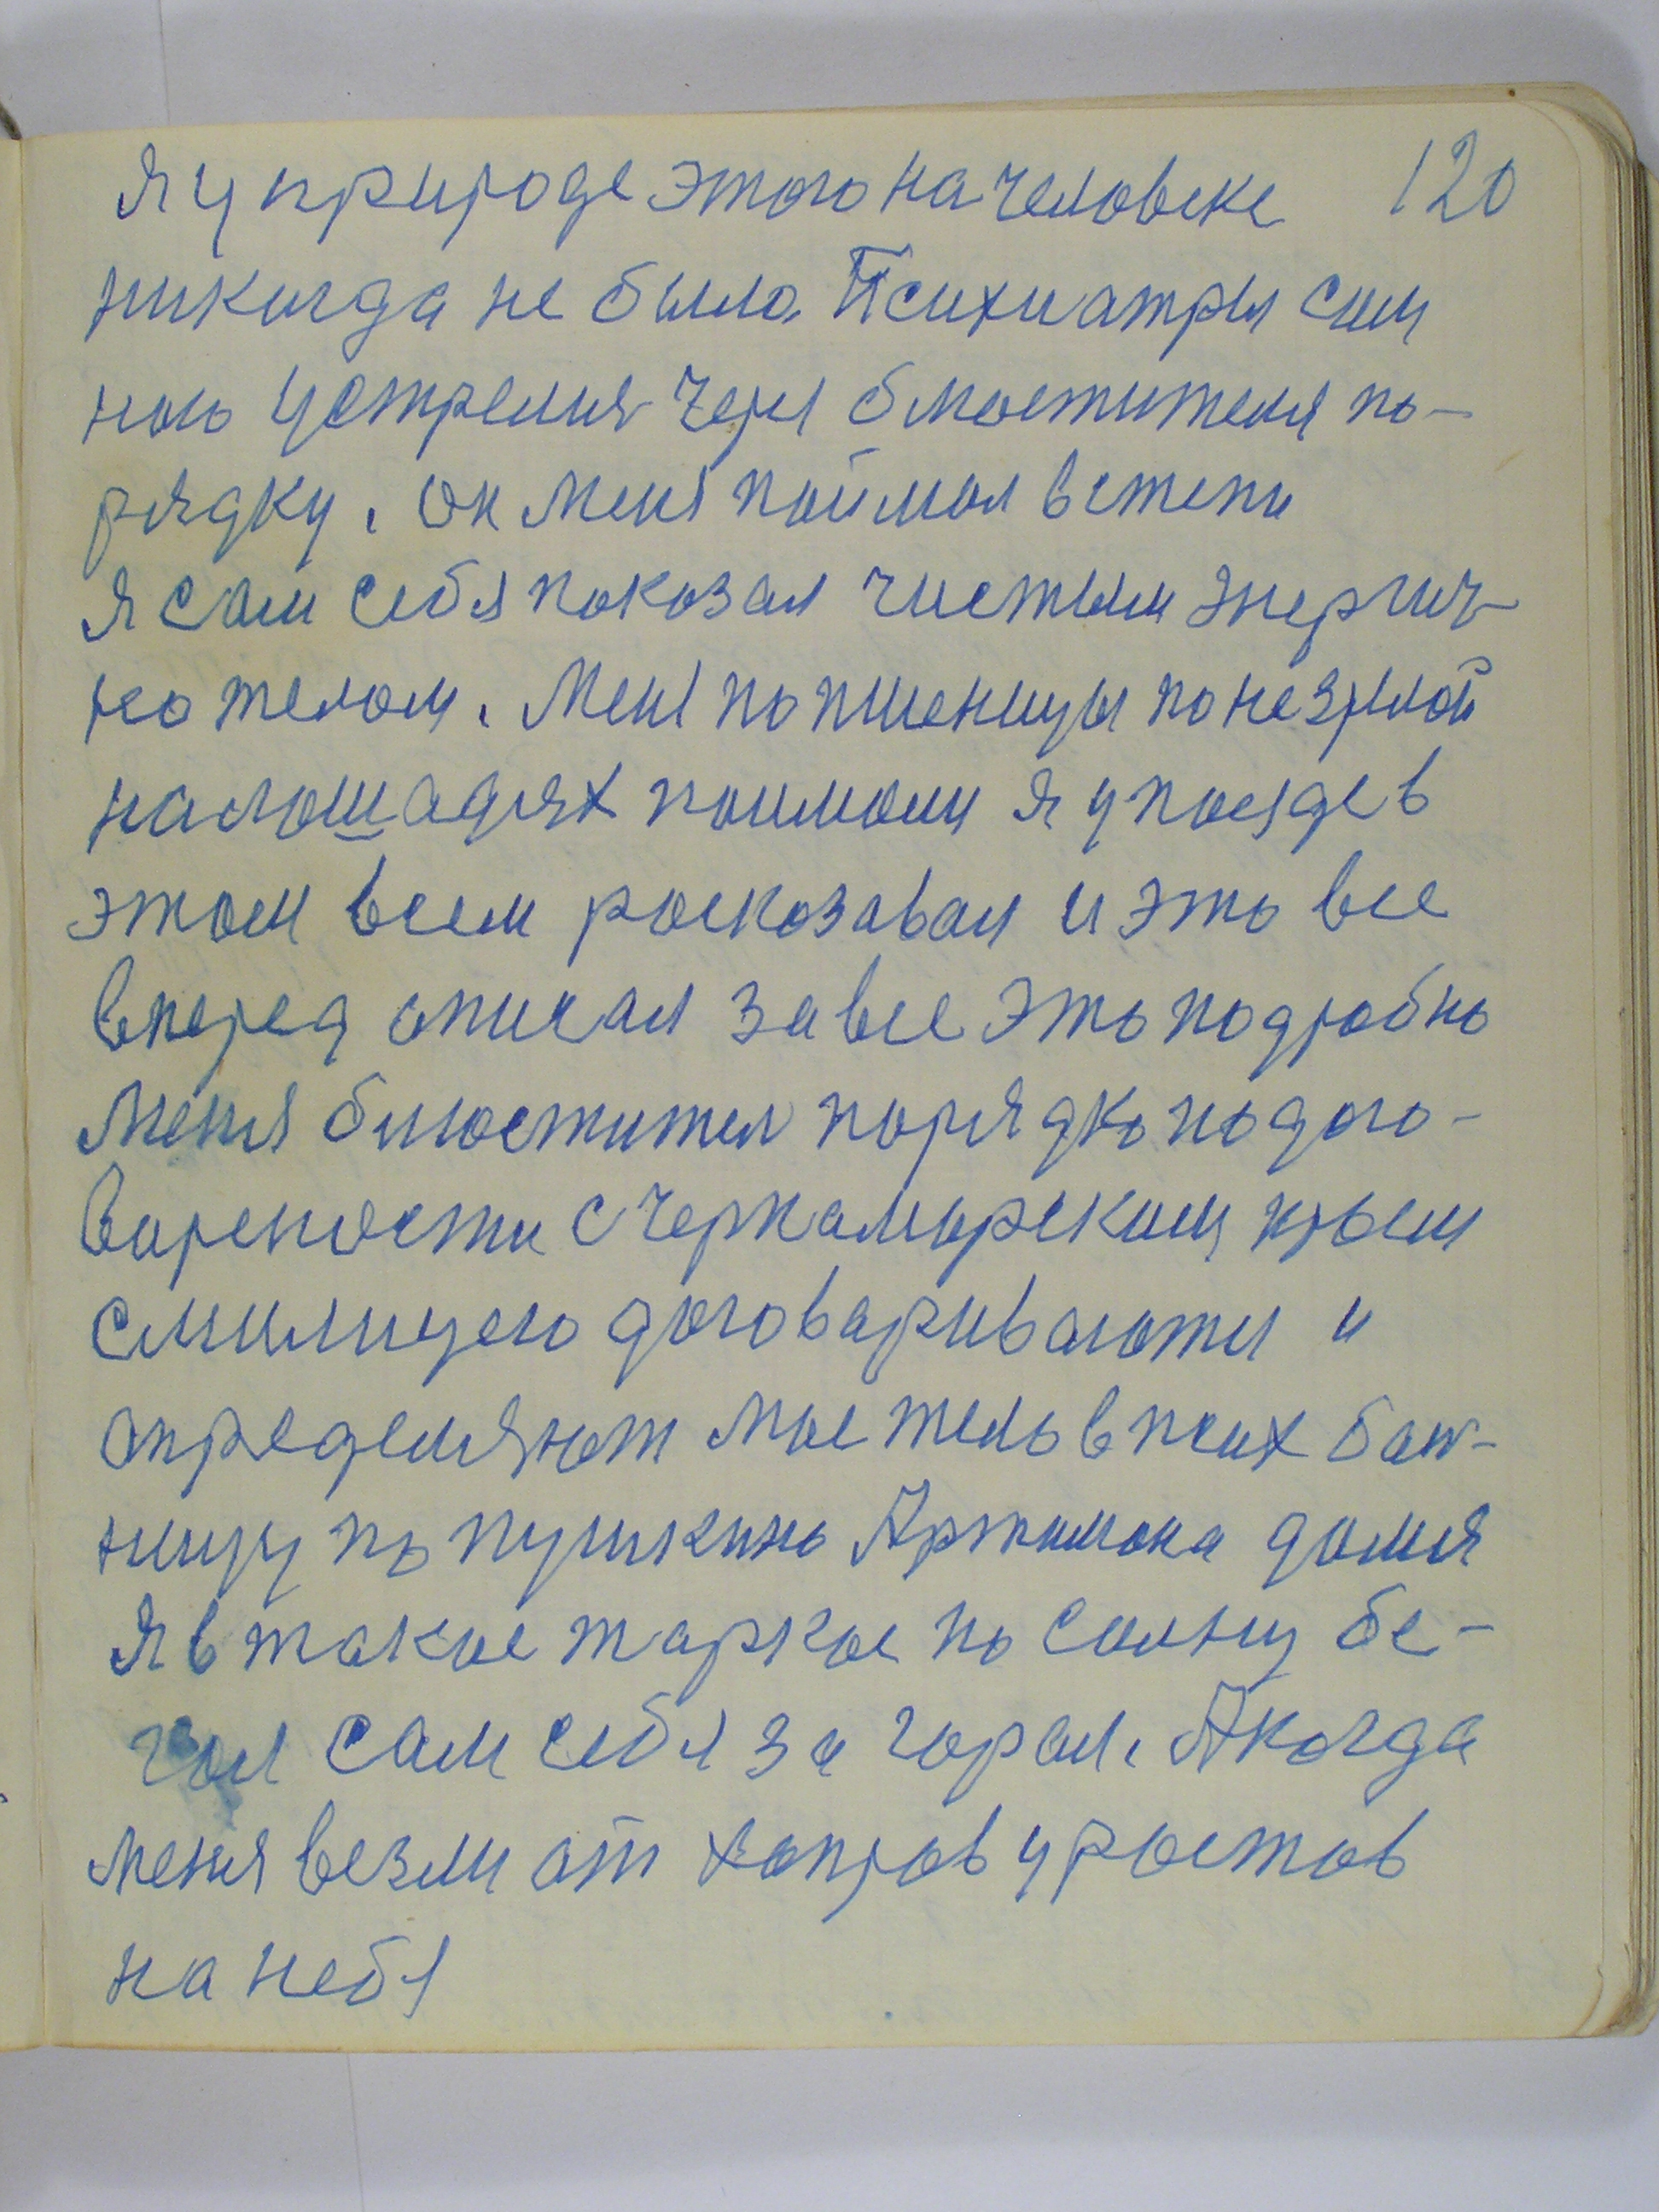 я у природе этого на человеке 120
никогда не было. Психиатрия сом
ною устрелия через блюстителя по-
рядку. Он меня поймал в степи
Я сам себя показал чистым энергич-
но телом. Меня по пшеницы по незрилой
на лошадях поимали я у поезде в
этом всем росказавал и это все
вперед описал за все это подробно
меня блюстител порядко по дого-
ворености с Черкаморским крыем
с милицею договариваются и
определяют мое тело в псих бол-
ницу по пушкино Артимона домия
Я в такое жаркое по солнцу бе-
гол сам себя за горал. А когда
меня везли от хопров у ростов
на небя